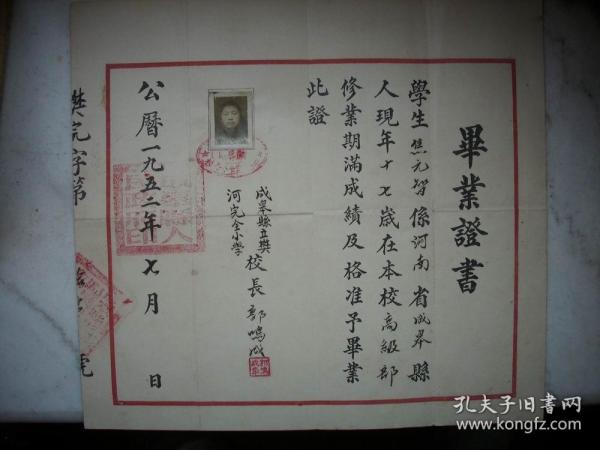 畢業證書
學生 元智係河南省成皋縣
人現年十七歲在本校高級部
修業期滿成績及格准予畢業
此證
成皋縣立樊
河完全小學
校長郭鳴成
公曆一九五二年七月 日
樊完字第 號
孔夫子旧书网
www.kongfz.com